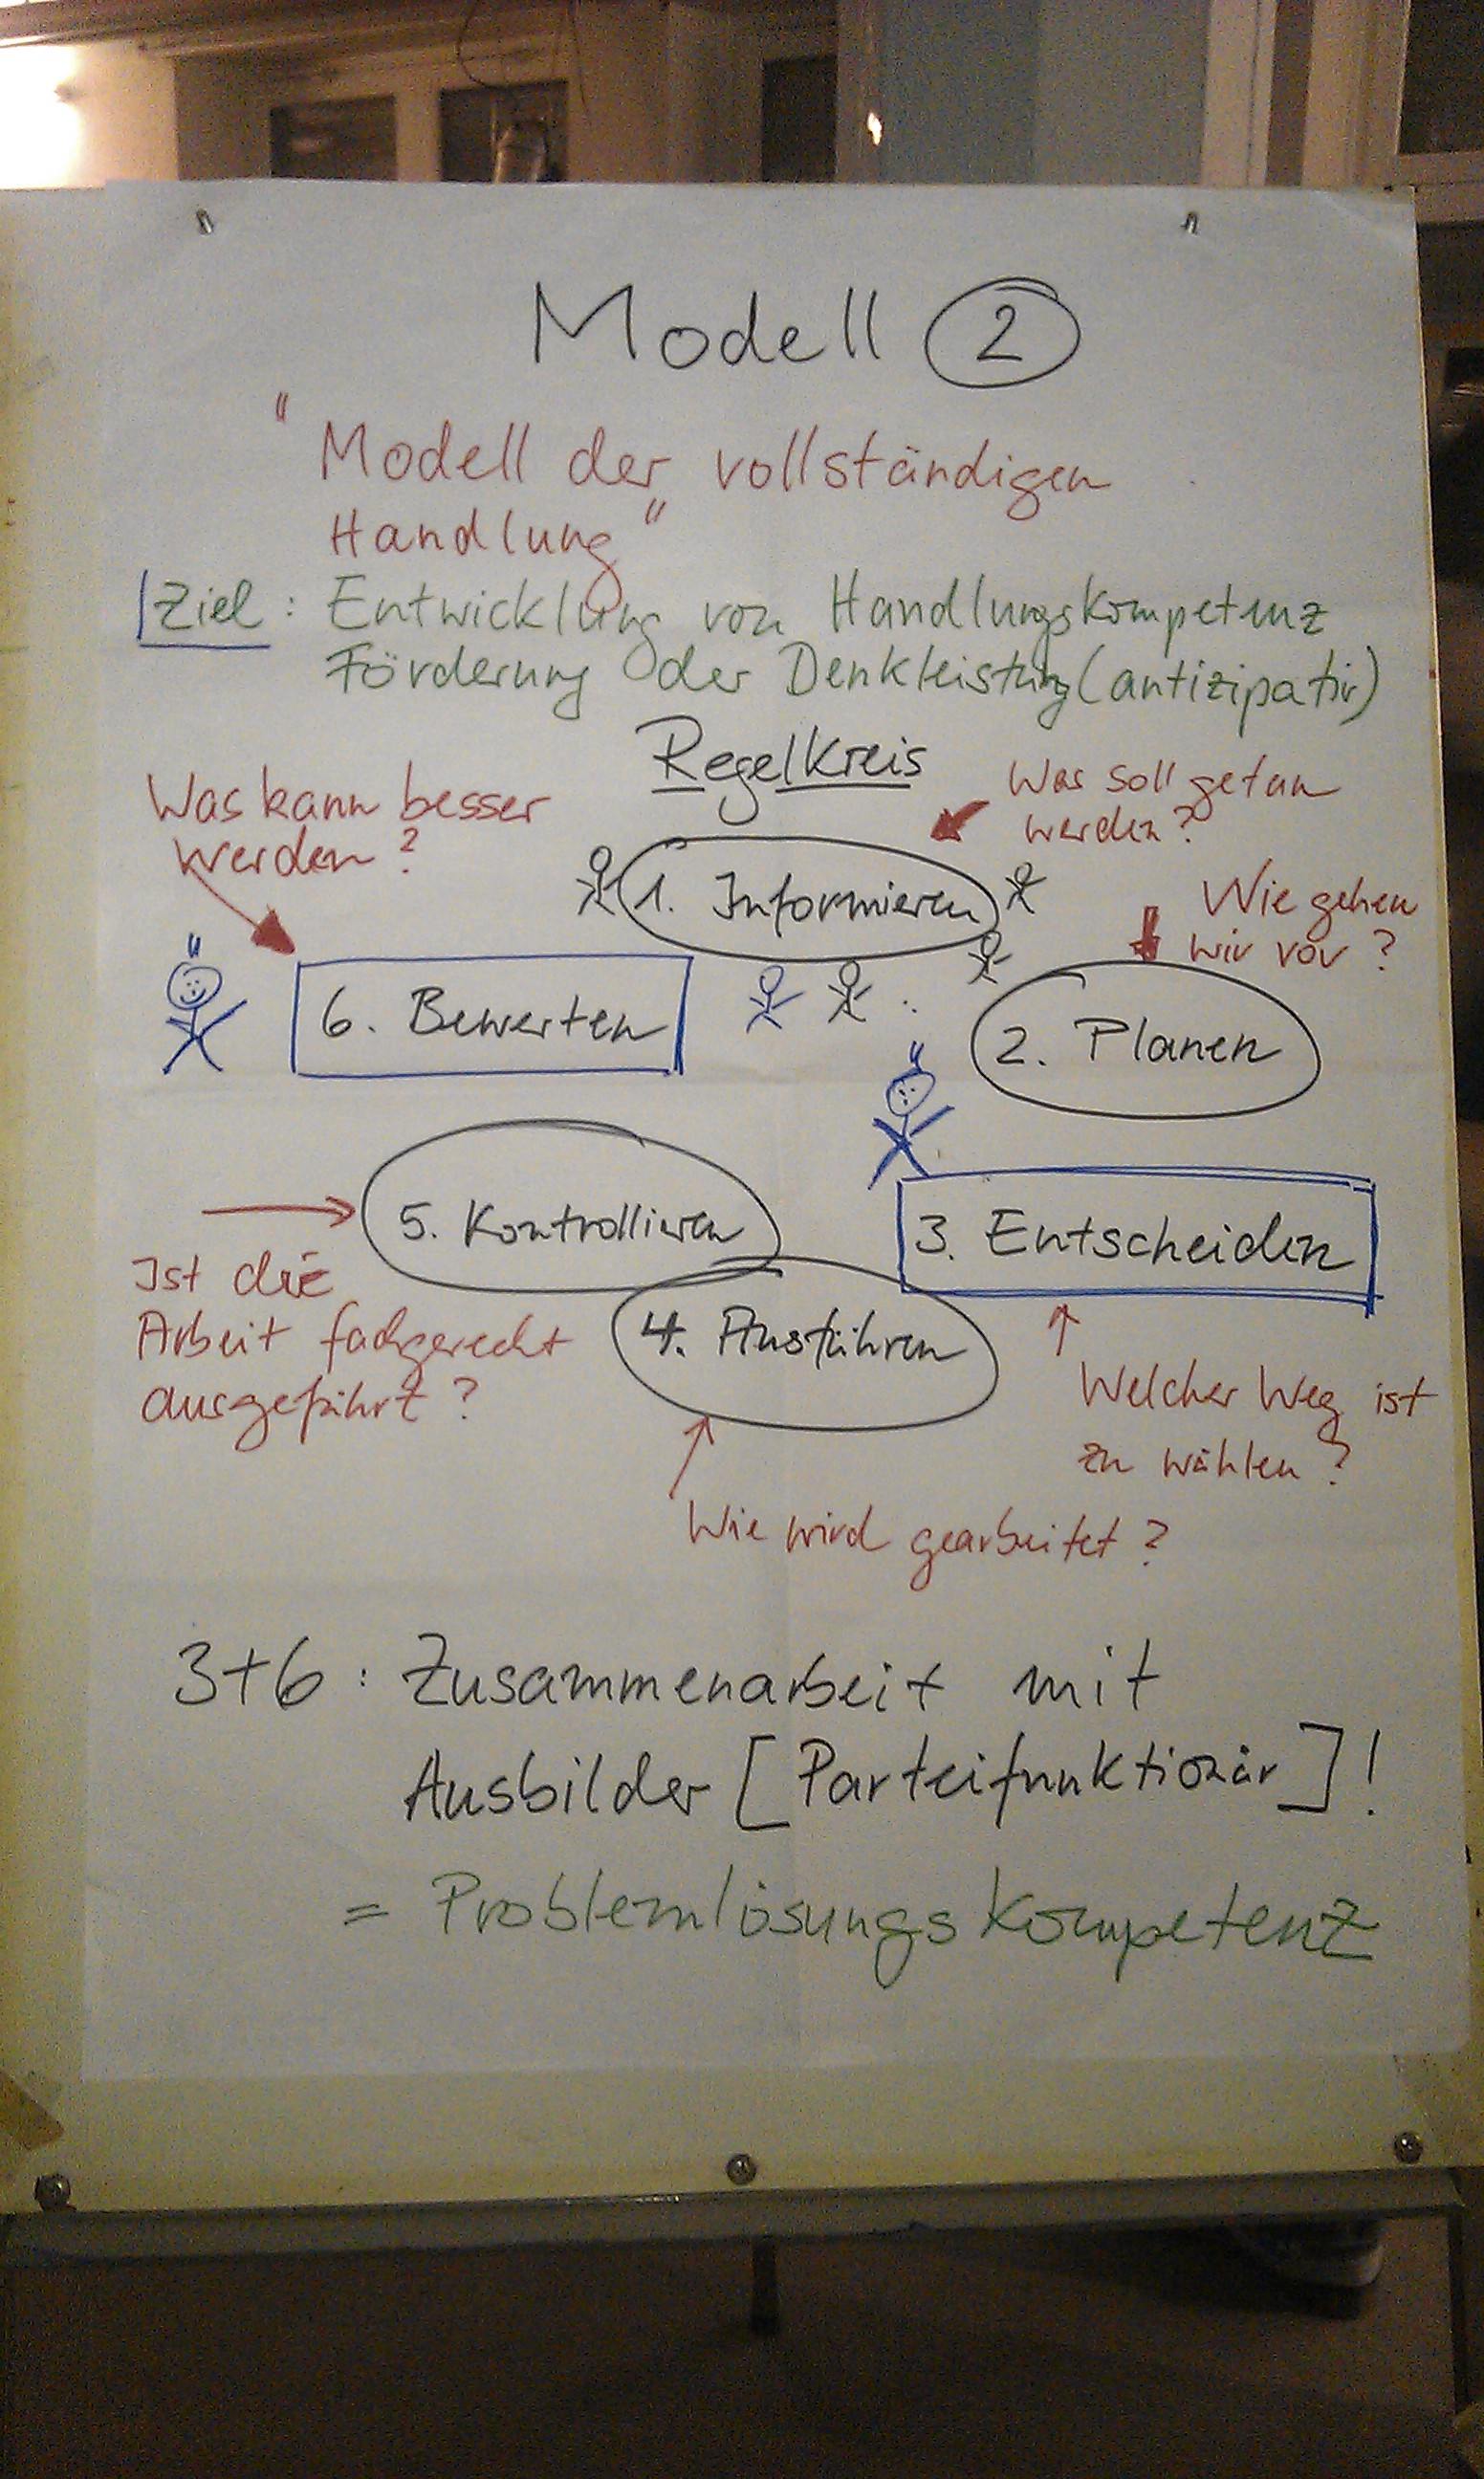 Modell 2
"Modell der vollständigen
Handlung"
Ziel: Entwicklung von Handlungskompetenz
Förderung der Denkleistung (antizipativ)
Regelkreis
Was kann besser
werden?
Was soll getan
werden?
1. Informieren
Wie gehen
wir vor?
6. Bewerten
2. Planen
5. Kontrollieren
3. Entscheiden
Ist die
Arbeit fachgerecht
ausgeführt?
4. Ausführen
Welcher Weg ist
zu wählen?
Wie wird gearbeitet?
3+6: Zusammenarbeit mit
Ausbilder [Parteifunktionär]!
= Problemlösungskompetenz